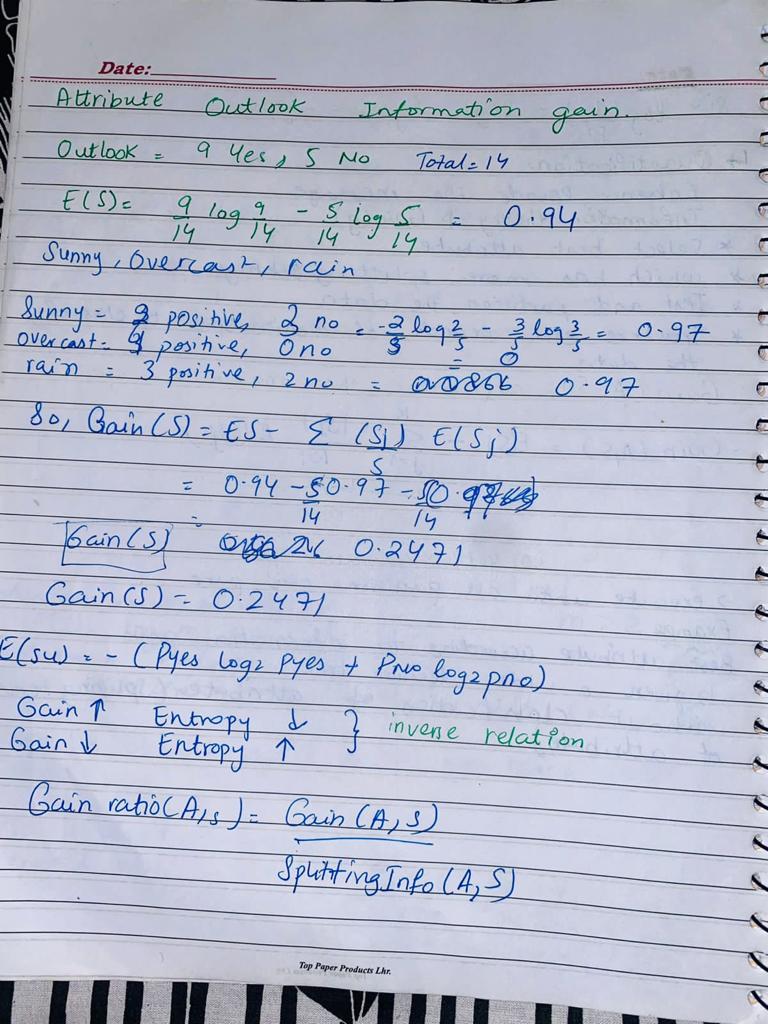 Date:
Attribute Outlook Information gain.
Outlook = 9 Yes, 5 No Total = 14
E(S) = 9/14 log 9/14 - 5/14 log 5/14 = 0.94
Sunny, Overcast, rain
Sunny = positive, no = -2/5 log 2/5 - 3/5 log 3/5 = 0.97
overcast = positive, 0 no = 0
rain = 3 positive, 2 no = 0.97
So, Gain(S) = ES - Σ (Sj)/S E(Sj)
= 0.94 - 5/14 0.97 - 5/14
=
Gain(S) 0.2471
Gain(S) = 0.2471
E(su) = - (Pyes log2 Pyes + Pno log2 pno)
Gain ↑ Entropy ↓ } inverse relation
Gain ↓ Entropy ↑
Gain ratio(A,s) = Gain (A, S) / SplittingInfo (A, S)
Top Paper Products Lhr.